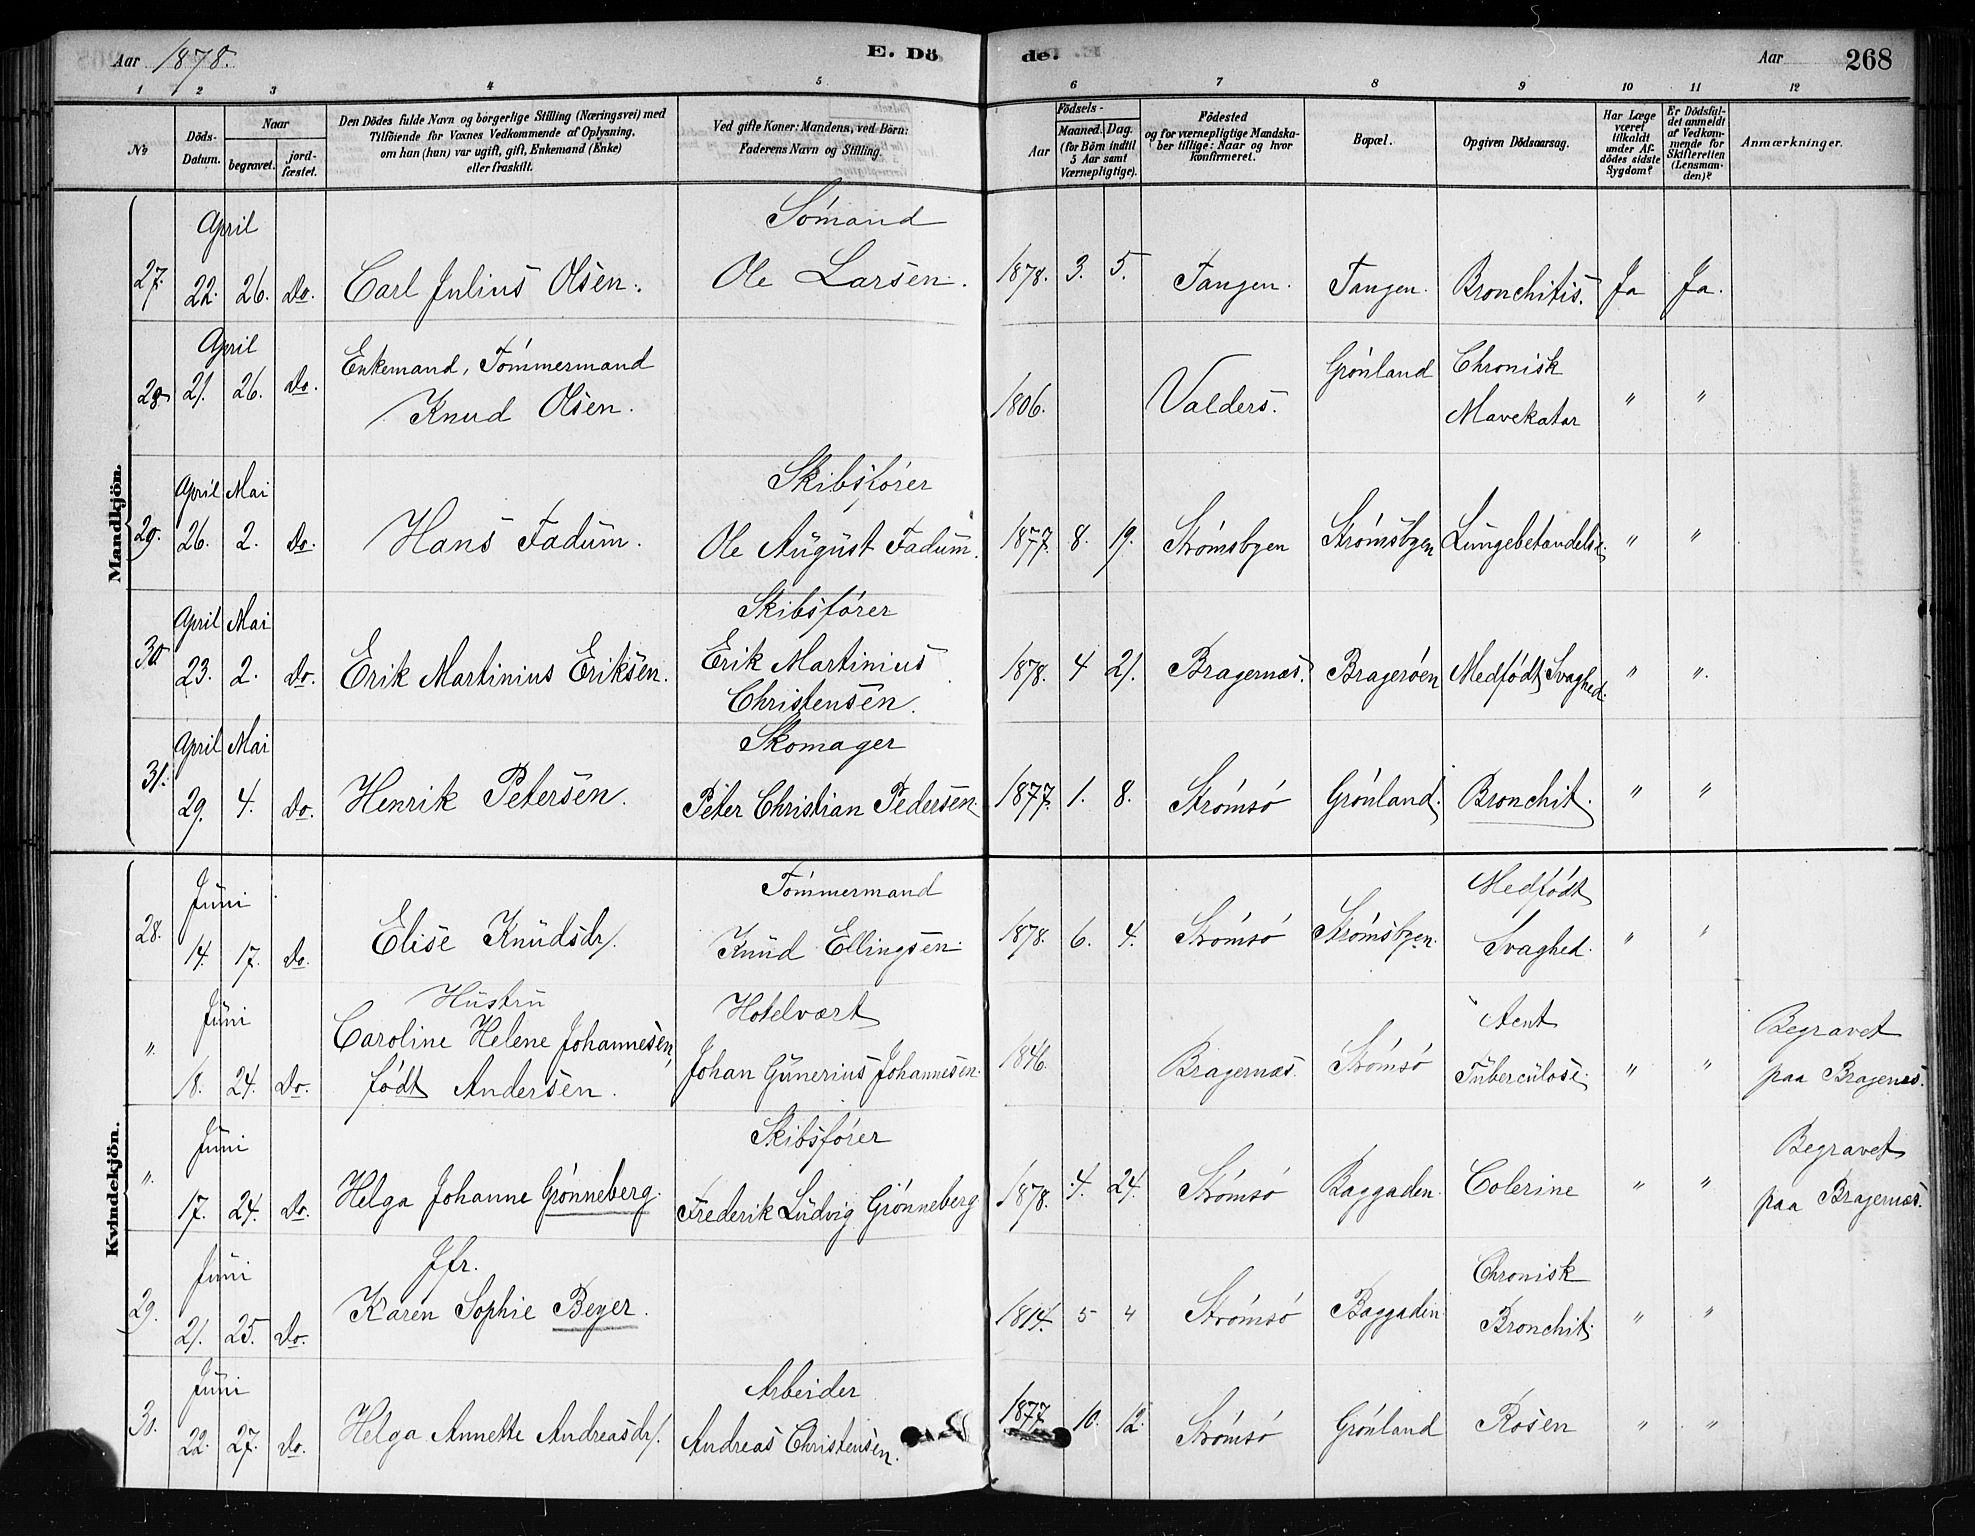 Aar 1878. E. Dö
de. Aar 268
1 2 3 4 5 6 7 8 9 10 11 12
No Döds-Datum. Naar begravet. jord-fæstet.
Den Dödes fulde Navn og borgerlige Stilling (Næringsvei) med
Tilföiende for Voxnes Vedkommende af Oplysning,
om han (hun) var ugift, gift, Enkemand (Enke)
eller fraskilt.
Ved gifte Koner: Mandens, ved Börn:
Faderens Navn og Stilling.
Födsels-
Aar Maaned. Dag.
(for Börn indtil
5 Aar samt
Værnepligtige).
Födested
og for værnepligtige Mandska-
ber tillige: Naar og hvor
konfirmeret.
Bopæl.
Opgiven Dödsaarsag.
Har Læge
været
tilkaldt
under Af-
dödes sidste
Sygdom?
Er Dödsfal-
det anmeldt
af Vedkom-
mende for
Skifteretten
(Lensman-
den)?
Anmærkninger.
Mandkjön.
April Sómand
27. 22. 26. Do. Carl Julius Olsen. Ole Larsen. 1878. 3. 5. Tangen. Tangen. Bronchitis. Ja Ja.
April Enkemand, Tómmermand Grónland Chronisk
28. 21. 26. Do. Knud Olsen. 1806. Valders. Mavekatar " "
April Mai Skibsfórer
29. 26. 2. Do. Hans Fadum. Ole August Fadum. 1877. 8. 19. Strómsbyen Strómsbyen Lungebetændelse. " "
April Mai Skibsfórer
30 23. 2. Do. Erik Martinius Eriksen. Erik Martinius 1878. 4 21. Bragernæs. Bragerøen Medfódt Svaghed. " "
Christensen.
April Mai Skomager
31. 29. 4. Do. Henrik Petersen. Peter Christian Pedersen. 1877. 1. 8. Strómsó Grónland. Bronchit. " "
Kvindekjön.
Juni Tómmermand Medfódt
28. 14. 17. Do. Elise Knudsdr/. Knud Ellingsen. 1878. 6. 4. Strómsó Strómsbyen. Svaghed. " '
Juni Hustru Hotelvært Acut Begravet
" Caroline Helene Johannesen,
18. 24. Do. fódt Andersen. Johan Gunerius Johannesen. 1846. Bragernæs. Strómsó Tuberculose. " " paa Bragenæs.
Juni Skibsfórer Begravet
" 17. 24. Do. Helga Johanne Grónneberg. Frederik Ludvig Grónneberg 1878. 4. 24. Strómsó Baggaden. Colerine " " paa Bragernæs.
Juni Jfr. Chronisk
29. 21. 25. Do. Karen Sophie Beyer. 1814. 5 4 Strómsó Baggaden Bronchit. " "
Juni Arbeider
30. 22. 27. Do. Helga Annette Andreasdr/. Andreas Christensen. 1877 10. 12. Strómsó Grónland Rosen " "